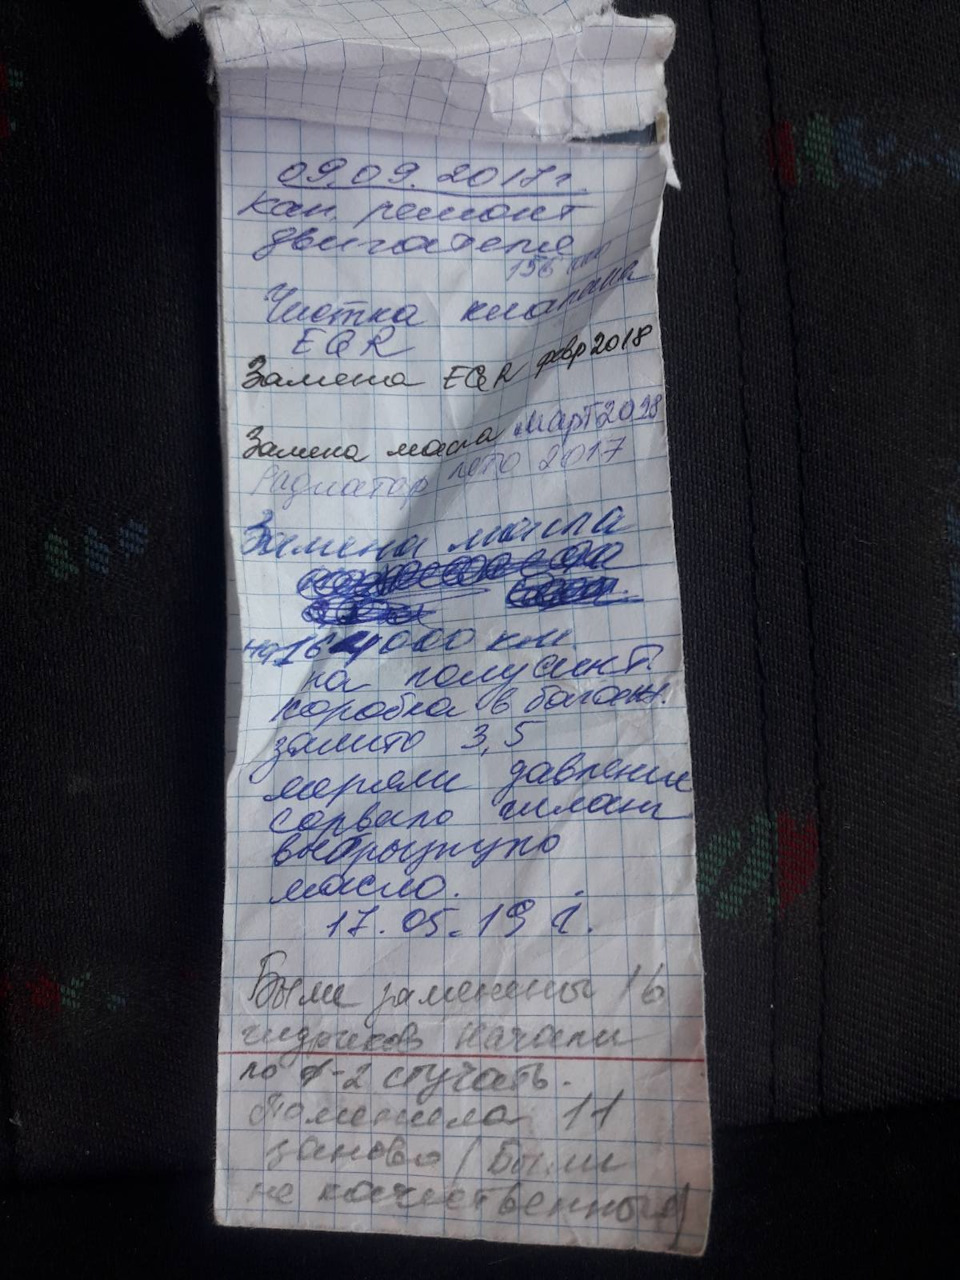 09.09.2017г.
кап. ремонт
двигателя
156
Чистка клапана
EGR
Замена EGR февр 2018
Замена масла март 2018
Радиатор лето 2017
Замена масла
на 164000 км.
на полусинт.
коробка в багажн.
залито 3,5
меряли давление
сорвало шланг
выбрызнуло
масло.
17.05.19 г.
Были заменены 16
гидриков начали
по 1-2 стучать.
Поменяла 11
заново (Были
не качественные)